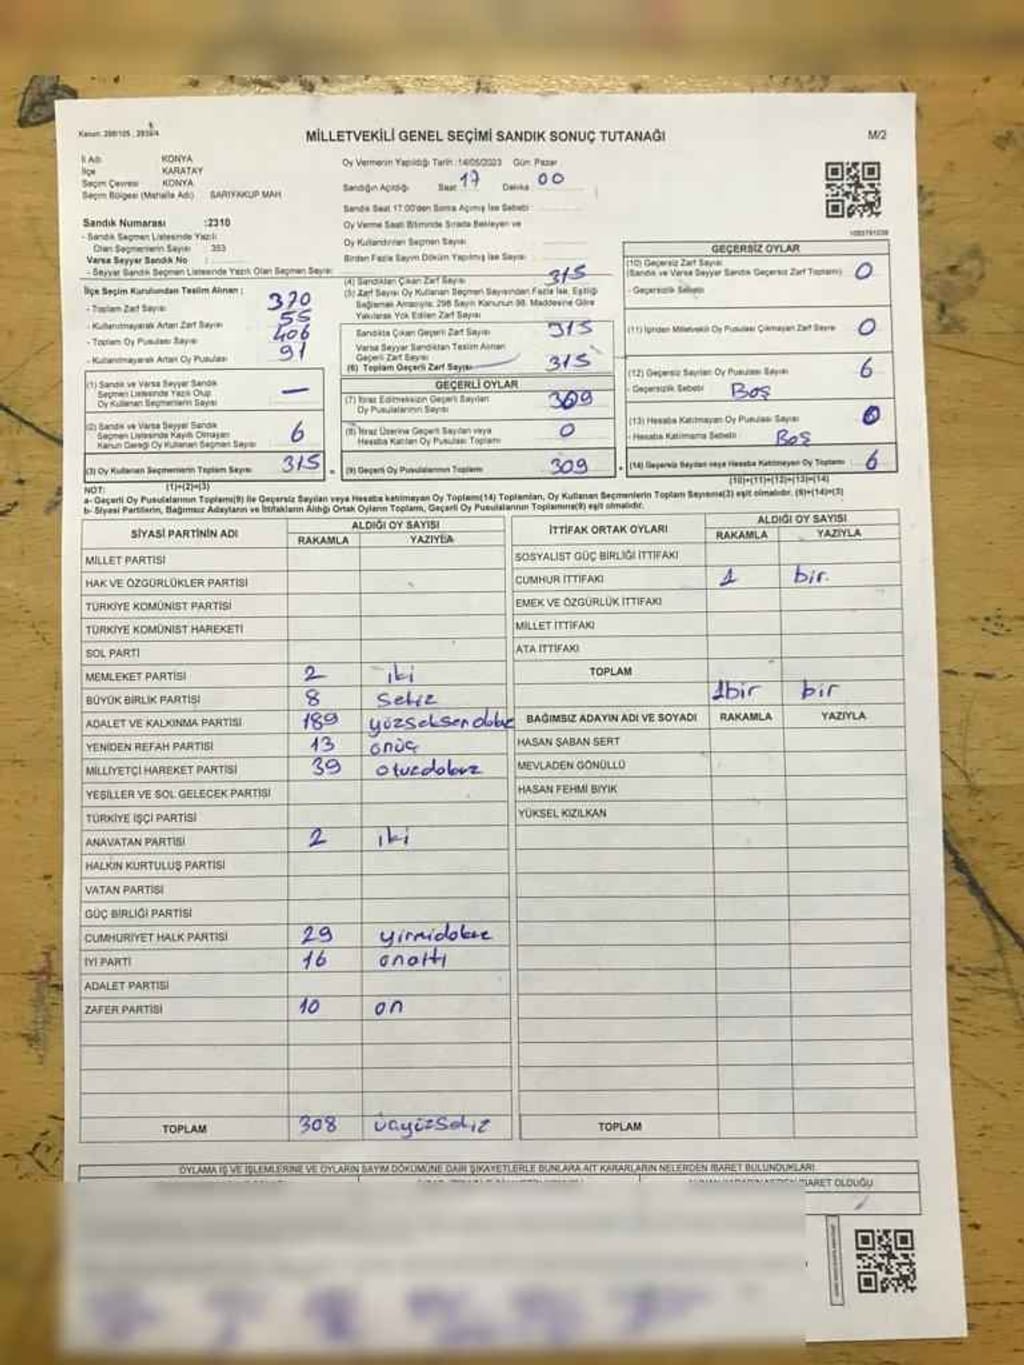 Kanun: 298/105 , 2839/4
MİLLETVEKİLİ GENEL SEÇİMİ SANDIK SONUÇ TUTANAĞI
M/2
İl Adı KONYA
İlçe KARATAY
Seçim Çevresi KONYA
Seçim Bölgesi (Mahalle Adı) SARIYAKUP MAH
Sandık Numarası :2310
- Sandık Seçmen Listesinde Yazılı
Olan Seçmenlerin Sayısı 353
Varsa Seyyar Sandık No :
- Seyyar Sandık Seçmen Listesinde Yazılı Olan Seçmen Sayısı:
Oy Vermenin Yapıldığı Tarih :14/05/2023 Gün: Pazar
Sandığın Açıldığı Saat 17 Dakika 00
Sandık Saat 17:00'den Sonra Açılmış İse Sebebi :
Oy Verme Saati Bitiminde Sırada Bekleyen ve
Oy Kullandırılan Seçmen Sayısı
Birden Fazla Sayım Döküm Yapılmış İse Sayısı :
İlçe Seçim Kurulundan Teslim Alınan :
- Toplam Zarf Sayısı 370
- Kullanılmayarak Artan Zarf Sayısı 55
- Toplam Oy Pusulası Sayısı 406
- Kullanılmayarak Artan Oy Pusulası 91
(1) Sandık ve Varsa Seyyar Sandık
Seçmen Listesinde Yazılı Olup
Oy Kullanan Seçmenlerin Sayısı —
(2) Sandık ve Varsa Seyyar Sandık
Seçmen Listesinde Kayıtlı Olmayan
Kanun Gereği Oy Kullanan Seçmen Sayısı 6
(3) Oy Kullanan Seçmenlerin Toplam Sayısı 315
(1)+(2)=(3)
(4) Sandıktan Çıkan Zarf Sayısı 315
(5) Zarf Sayısı Oy Kullanan Seçmen Sayısından Fazla İse, Eşitliği
Sağlamak Amacıyla; 298 Sayılı Kanunun 98. Maddesine Göre
Yakılarak Yok Edilen Zarf Sayısı
Sandıkta Çıkan Geçerli Zarf Sayısı 315
Varsa Seyyar Sandıktan Teslim Alınan
Geçerli Zarf Sayısı
(6) Toplam Geçerli Zarf Sayısı 315
GEÇERLİ OYLAR
(7) İtiraz Edilmeksizin Geçerli Sayılan
Oy Pusulalarının Sayısı 309
(8) İtiraz Üzerine Geçerli Sayılan veya
Hesaba Katılan Oy Pusulası Toplamı 0
(9) Geçerli Oy Pusulalarının Toplamı 309
GEÇERSİZ OYLAR
(10) Geçersiz Zarf Sayısı
(Sandık ve Varsa Seyyar Sandık Geçersiz Zarf Toplamı) 0
- Geçersizlik Sebebi
(11) İçinden Milletvekili Oy Pusulası Çıkmayan Zarf Sayısı 0
(12) Geçersiz Sayılan Oy Pusulası Sayısı 6
- Geçersizlik Sebebi Boş
(13) Hesaba Katılmayan Oy Pusulası Sayısı 0
- Hesaba Katılmama Sebebi Boş
(14) Geçersiz Sayılan veya Hesaba Katılmayan Oy Toplamı 6
(10)+(11)+(12)+(13)=(14)
NOT:
a- Geçerli Oy Pusulalarının Toplamı(9) ile Geçersiz Sayılan veya Hesaba katılmayan Oy Toplamı(14) Toplamları, Oy Kullanan Seçmenlerin Toplam Sayısına(3) eşit olmalıdır. (9)+(14)=(3)
b- Siyasi Partilerin, Bağımsız Adayların ve İttifakların Aldığı Ortak Oyların Toplamı, Geçerli Oy Pusulalarının Toplamına(9) eşit olmalıdır.
SİYASİ PARTİNİN ADI ALDIĞI OY SAYISI
RAKAMLA YAZIYLA
MİLLET PARTİSİ
HAK VE ÖZGÜRLÜKLER PARTİSİ
TÜRKİYE KOMÜNİST PARTİSİ
TÜRKİYE KOMÜNİST HAREKETİ
SOL PARTİ
MEMLEKET PARTİSİ 2 iki
BÜYÜK BİRLİK PARTİSİ 8 sekiz
ADALET VE KALKINMA PARTİSİ 189 yüzseksendokuz
YENİDEN REFAH PARTİSİ 13 onüç
MİLLİYETÇİ HAREKET PARTİSİ 39 otuzdokuz
YEŞİLLER VE SOL GELECEK PARTİSİ
TÜRKİYE İŞÇİ PARTİSİ
ANAVATAN PARTİSİ 2 iki
HALKIN KURTULUŞ PARTİSİ
VATAN PARTİSİ
GÜÇ BİRLİĞİ PARTİSİ
CUMHURİYET HALK PARTİSİ 29 yirmidokuz
İYİ PARTİ 16 onaltı
ADALET PARTİSİ
ZAFER PARTİSİ 10 on
TOPLAM 308 üçyüzsekiz
İTTİFAK ORTAK OYLARI ALDIĞI OY SAYISI
RAKAMLA YAZIYLA
SOSYALİST GÜÇ BİRLİĞİ İTTİFAKI
CUMHUR İTTİFAKI 1 bir.
EMEK VE ÖZGÜRLÜK İTTİFAKI
MİLLET İTTİFAKI
ATA İTTİFAKI
TOPLAM
1bir bir
BAĞIMSIZ ADAYIN ADI VE SOYADI RAKAMLA YAZIYLA
HASAN ŞABAN SERT
MEVLADEN GÖNÜLLÜ
HASAN FEHMİ BIYIK
YÜKSEL KIZILKAN
TOPLAM
OYLAMA İŞ VE İŞLEMLERİNE VE OYLARIN SAYIM DÖKÜMÜNE DAİR ŞİKAYETLERLE BUNLARA AİT KARARLARIN NELERDEN İBARET BULUNDUKLARI
İBARET OLDUĞU